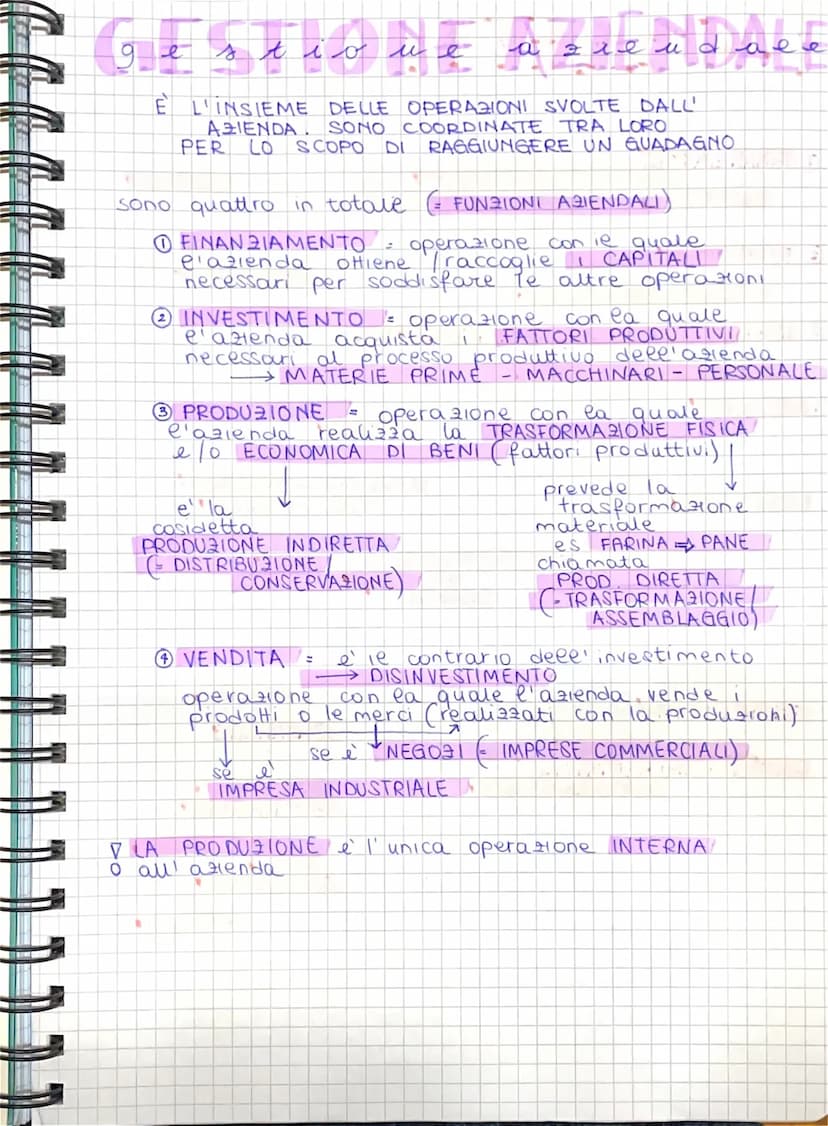 GESTIONE AZIENDALE
gestione aziendale
È L'INSIEME DELLE OPERAZIONI SVOLTE DALL'
AZIENDA. SONO COORDINATE TRA LORO
PER LO SCOPO DI RAGGIUNGERE UN GUADAGNO
sono quattro in totale (= FUNZIONI AZIENDALI)
① FINANZIAMENTO = operazione con le quale
l'azienda ottiene / raccoglie i CAPITALI
necessari per soddisfare le altre operazioni
② INVESTIMENTO = operazione con la quale
l'azienda acquista i FATTORI PRODUTTIVI
necessari al processo produttivo dell'azienda
→ MATERIE PRIME - MACCHINARI - PERSONALE
③ PRODUZIONE = operazione con la quale
l'azienda realizza la TRASFORMAZIONE FISICA
e/o ECONOMICA DI BENI (fattori produttivi)
è la
cosidetta
PRODUZIONE INDIRETTA
(= DISTRIBUZIONE /
CONSERVAZIONE)
prevede la
trasformazione
materiale
es FARINA ⇒ PANE
chiamata
PROD. DIRETTA
(= TRASFORMAZIONE /
ASSEMBLAGGIO)
④ VENDITA = è il contrario dell'investimento
→ DISINVESTIMENTO
operazione con la quale l'azienda vende i
prodotti o le merci (realizzati con la produzioni)
se è NEGOZI (= IMPRESE COMMERCIALI)
se è
IMPRESA INDUSTRIALE
LA PRODUZIONE è l'unica operazione INTERNA
all'azienda